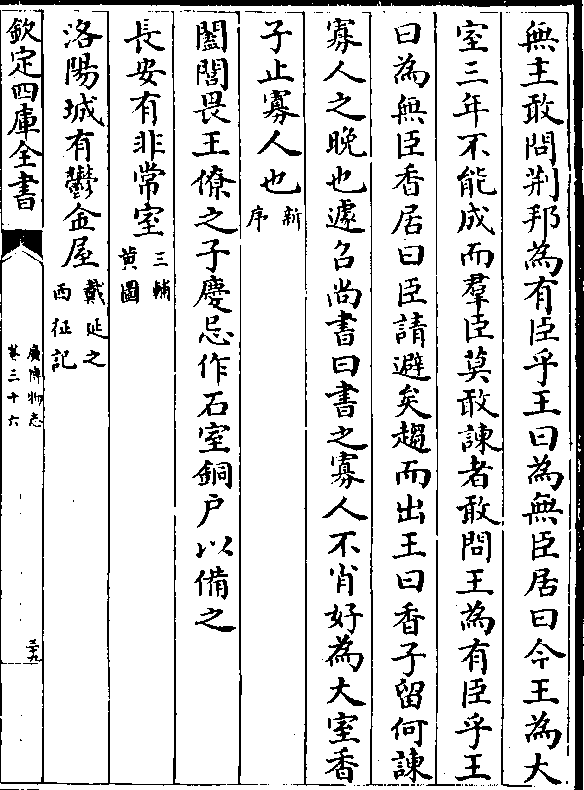 無主敢問荆邦為有臣乎王曰為無臣居曰今王為大
室三年不能成而羣臣莫敢諫者敢問王為有臣乎王
曰為無臣香居曰臣請避矣趨而出王曰香子留何諫
寡人之晚也遽召尚書曰書之寡人不肖好為大室香
子止寡人也新序
闔閭畏王僚之子慶忌作石室銅户以備之
長安有非常室三輔黄圖
洛陽城有鬱金屋戴延之西征記
欽定四庫全書
廣博物志
卷三十六
三十九